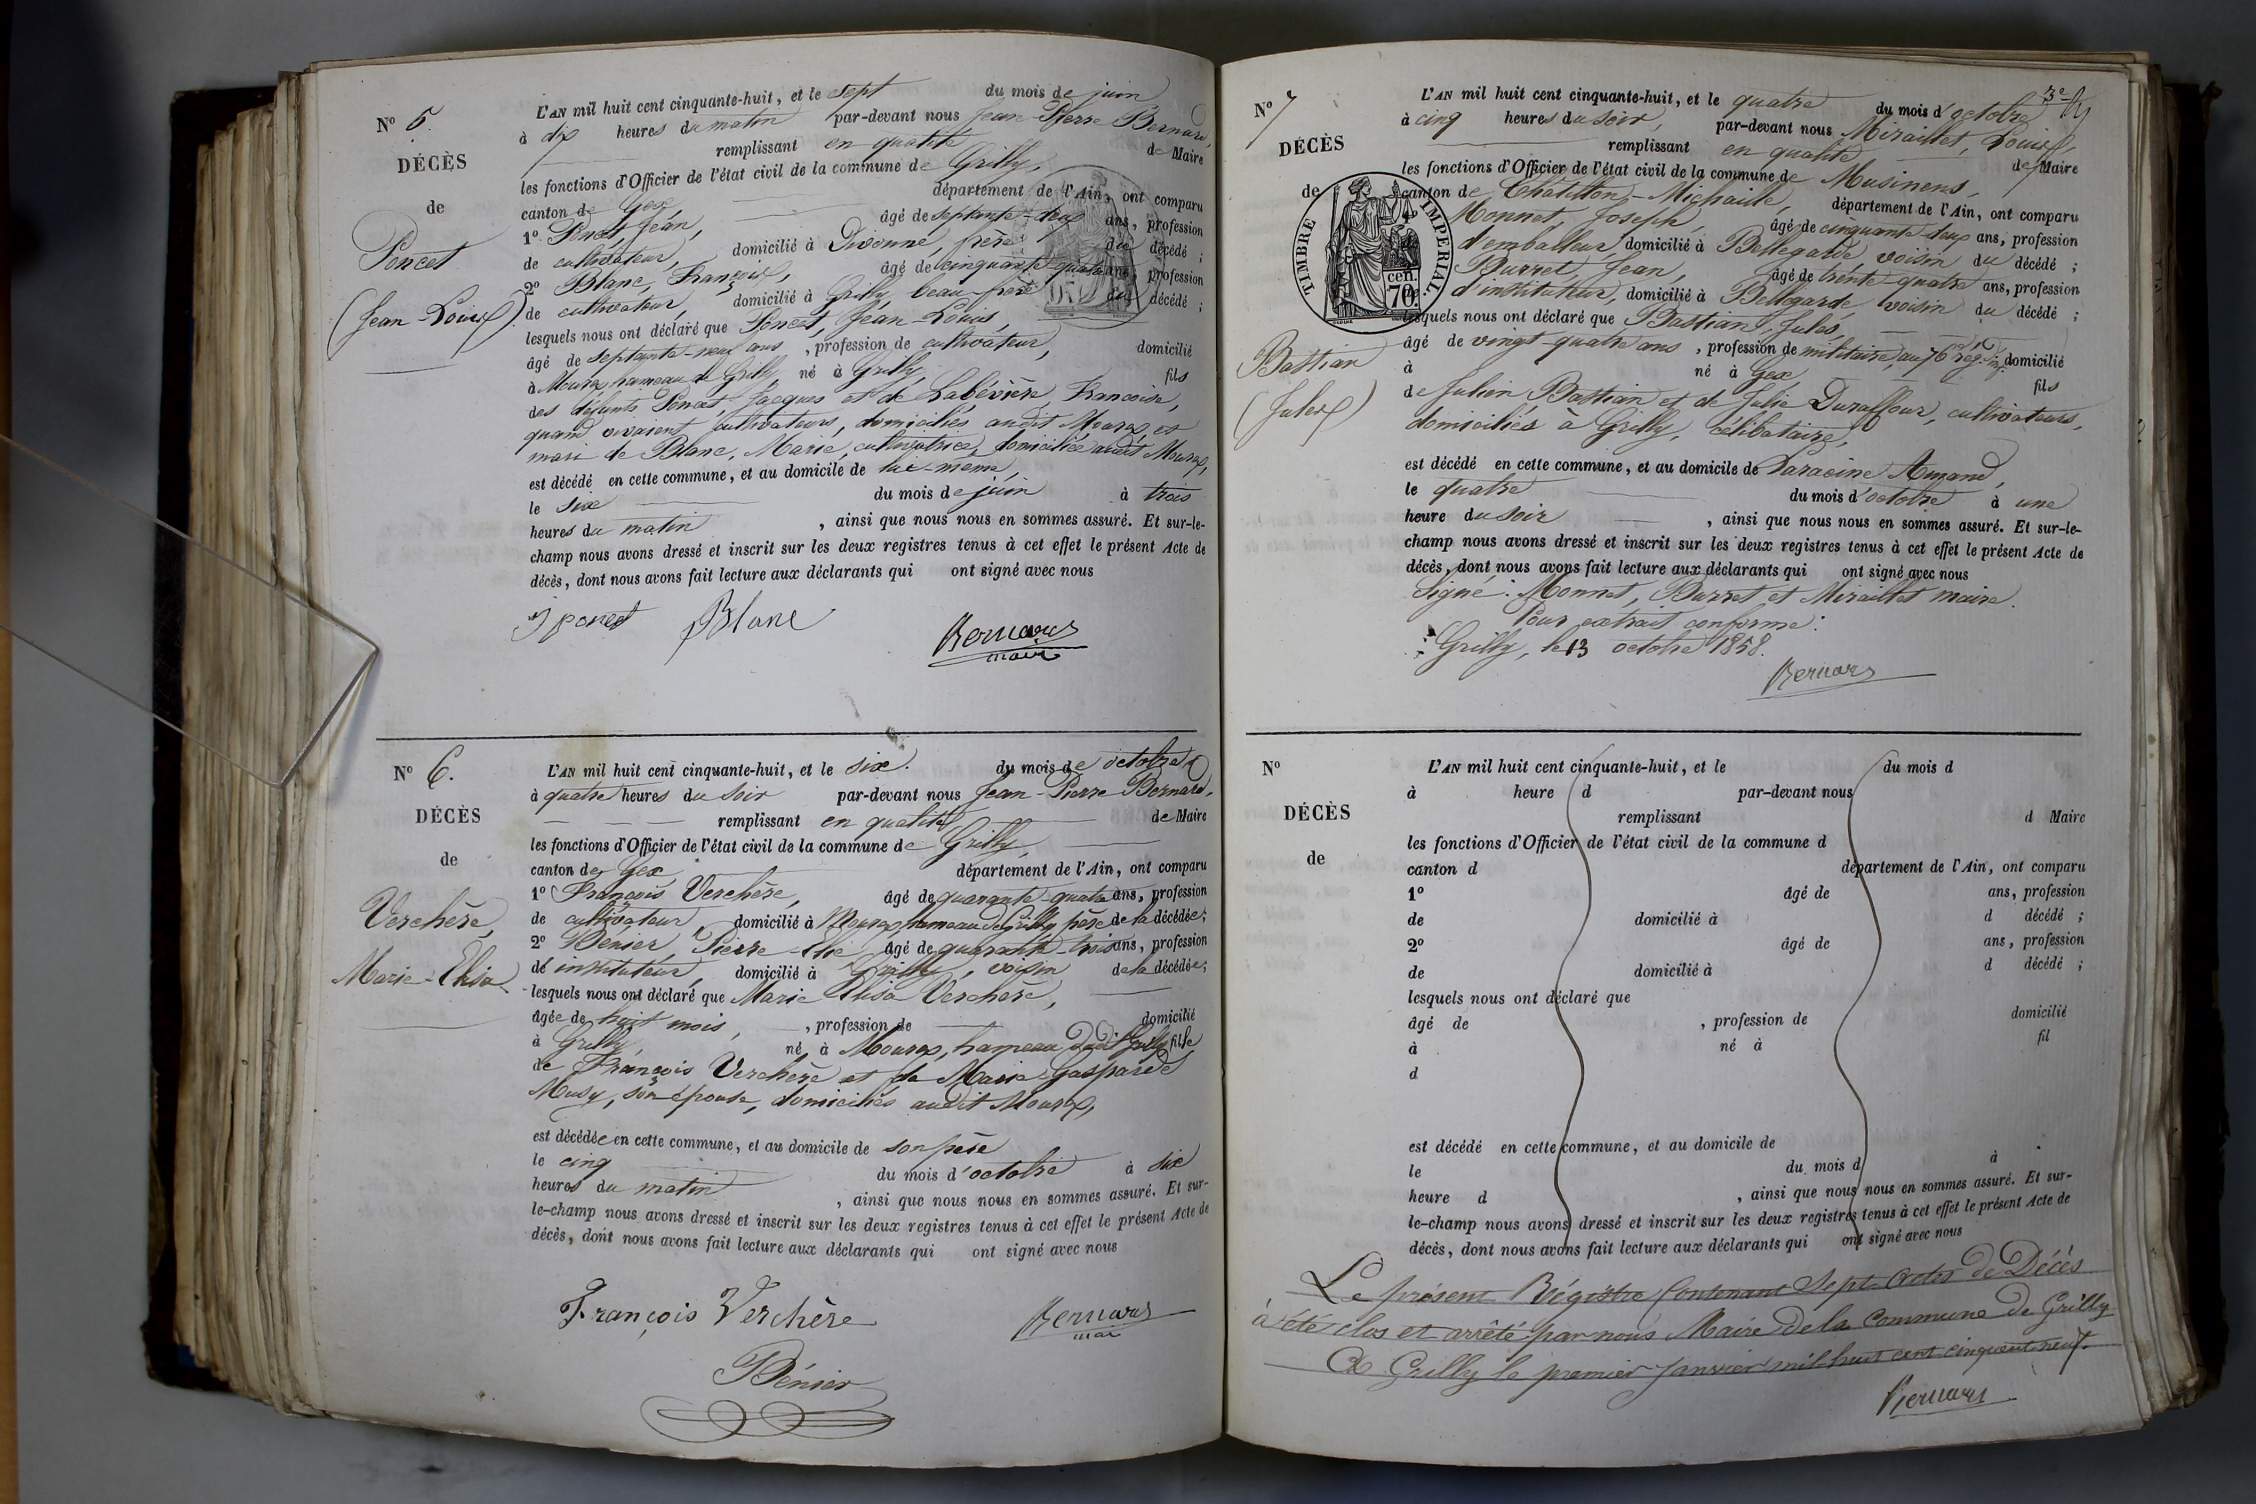 N° 5.
DÉCÈS
de
Poncet
(Jean Louis)
L'AN mil huit cent cinquante-huit, et le sept du mois de juin
à dix heures du matin par-devant nous Jean-Pierre Bernard,
remplissant en qualité de Maire
les fonctions d'Officier de l'état civil de la commune de Grilly,
canton de Gex département de l'Ain, ont comparu
1° Poncet, Jean, âgé de septante-deux ans, profession
de cultivateur, domicilié à Divonne, frère du décédé ;
2° Blanc, François, âgé de cinquante quatre ans, profession
de cultivateur, domicilié à Grilly, beau-frère du décédé ;
lesquels nous ont déclaré que Poncet, Jean Louis,
âgé de septante-neuf ans, profession de cultivateur, domicilié
à Mourex hameau de Grilly, né à Grilly fils
des défunts Poncet, Jacques et de Labévière, Françoise,
quand vivaient cultivateurs, domiciliés audit Mourex, et
mari de Blanc, Marie, cultivatrice, domiciliée audit Mourex,
est décédé en cette commune, et au domicile de lui-même,
le six du mois de juin à trois
heures du matin, ainsi que nous nous en sommes assuré. Et sur-le-
champ nous avons dressé et inscrit sur les deux registres tenus à cet effet le présent Acte de
décès, dont nous avons fait lecture aux déclarants qui ont signé avec nous
J poncet Blanc Bernard
maire
N° 6.
DÉCÈS
de
Verchère,
Marie-Elisa
L'AN mil huit cent cinquante-huit, et le six. du mois de octobre
à quatre heures du soir par-devant nous Jean-Pierre Bernard,
remplissant en qualité de Maire
les fonctions d'Officier de l'état civil de la commune de Grilly,
canton de Gex département de l'Ain, ont comparu
1° François Verchère, âgé de quarante-quatre ans, profession
de cultivateur domicilié à Mourex hameau de Grilly père de la décédée ;
2° Bénier, Pierre-Elie âgé de quarante-trois ans, profession
de instituteur, domicilié à Grilly, voisin de la décédée ;
lesquels nous ont déclaré que Marie Elisa Verchère,
âgée de huit mois, profession de domicilié
à Grilly né à Mourex, hameau dudit Grilly fille
de François Verchère et de Marie Gasparde
Musy, son épouse, domiciliés audit Mourex,
est décédée en cette commune, et au domicile de son père
le cinq du mois d'octobre à six
heures du matin, ainsi que nous nous en sommes assuré. Et sur-
le-champ nous avons dressé et inscrit sur les deux registres tenus à cet effet le présent Acte de
décès, dont nous avons fait lecture aux déclarants qui ont signé avec nous
François Verchère Bernard
mai
Bénier
3e
N° 7
DÉCÈS
de
TIMBRE IMPERIAL
cen.
70.
Bastian
(Jules)
L'AN mil huit cent cinquante-huit, et le quatre du mois d'octobre
à cinq heures du soir, par-devant nous Miraillet, Louis,
remplissant en qualité de Maire
les fonctions d'Officier de l'état civil de la commune de Musinens,
canton de Châtillon-Michaille, département de l'Ain, ont comparu
Monnet, Joseph, âgé de cinquante deux ans, profession
d'emballeur, domicilié à Bellegarde, voisin du décédé ;
Burret, Jean, âgé de trente-quatre ans, profession
d'instituteur, domicilié à Bellegarde voisin du décédé ;
lesquels nous ont déclaré que Bastian, Jules,
âgé de vingt-quatre ans, profession de militaire, au 76e rég. domicilié
à né à Gex fils
de Julien Bastian et de Julie Duraffour, cultivateurs,
domiciliés à Grilly, célibataire,
est décédé en cette commune, et au domicile de Saracine Amand,
le quatre du mois d'octobre à une
heure du soir, ainsi que nous nous en sommes assuré. Et sur-le-
champ nous avons dressé et inscrit sur les deux registres tenus à cet effet le présent Acte de
décès, dont nous avons fait lecture aux déclarants qui ont signé avec nous
Signé : Monnet, Burret et Miraillet maire.
Pour extrait conforme :
Grilly, le 13 octobre 1858.
Bernard
N°
DÉCÈS
de
L'AN mil huit cent cinquante-huit, et le du mois d
à heure d par-devant nous
remplissant d Maire
les fonctions d'Officier de l'état civil de la commune d
canton d département de l'Ain, ont comparu
1° âgé de ans, profession
de domicilié à d décédé ;
2° âgé de ans, profession
de domicilié à d décédé ;
lesquels nous ont déclaré que
âgé de , profession de domicilié
à né à fil
d
est décédé en cette commune, et au domicile de
le du mois d à
heure d , ainsi que nous nous en sommes assuré. Et sur-
le-champ nous avons dressé et inscrit sur les deux registres tenus à cet effet le présent Acte de
décès, dont nous avons fait lecture aux déclarants qui ont signé avec nous
Le présent Régistre Contenant Sept Actes de Décès
à été clos et arrêté par nous Maire de la Commune de Grilly
A Grilly le premier Janvier mil huit cent cinquant neuf.
Bernard